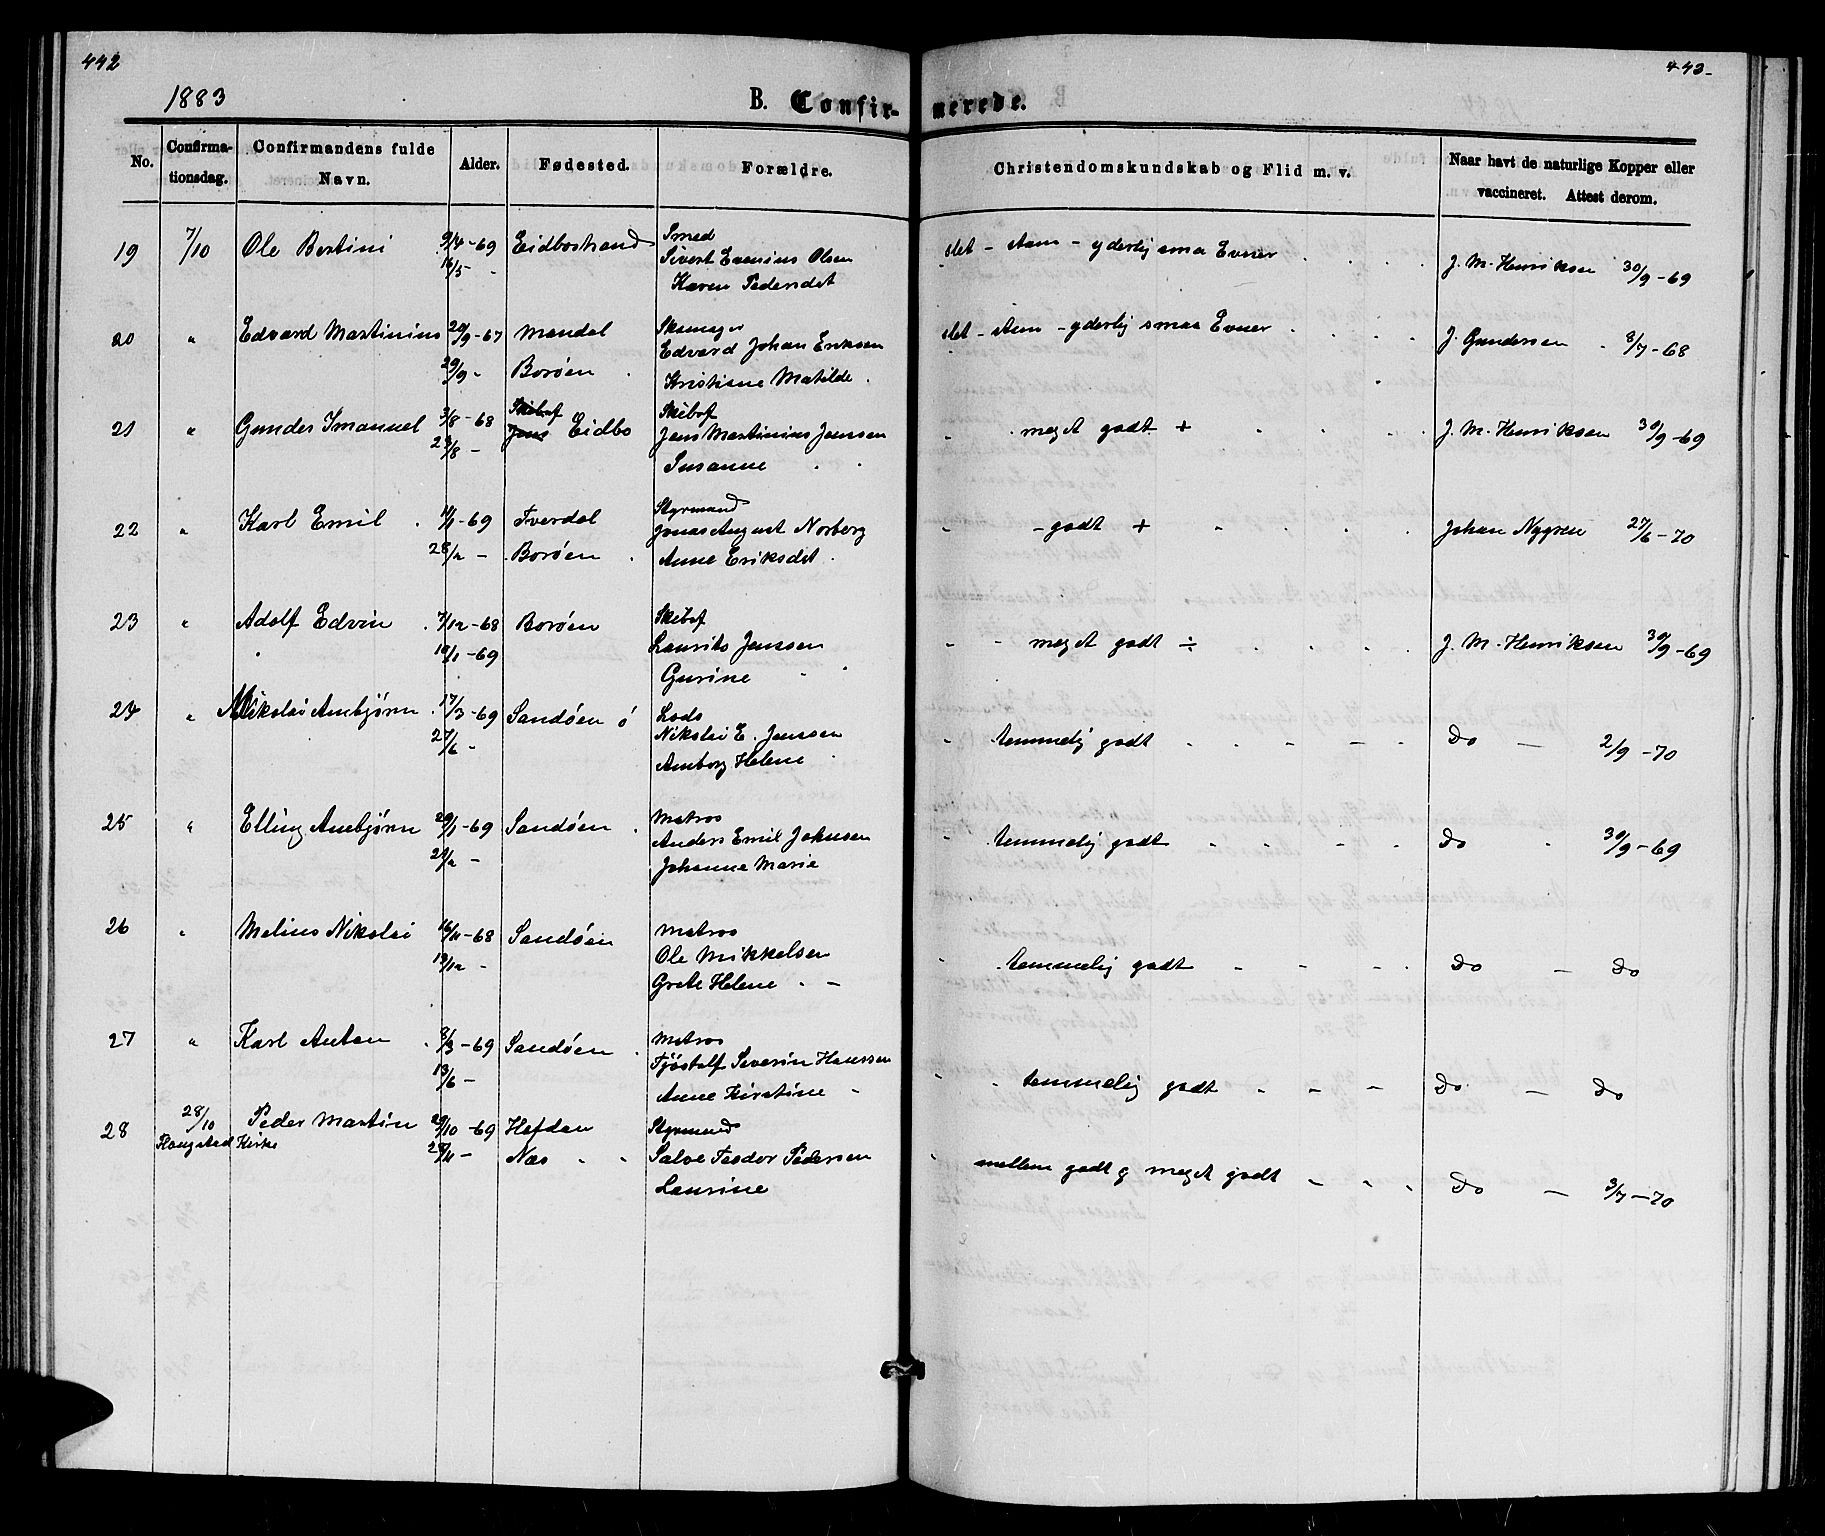 442
443-
1883
B. Confir-
merede.
No.
Confirma-
tionsdag.
Confirmandens fulde
Navn.
Alder.
Fødested.
Forældre.
Christendomskundskab og Flid m. v.
Naar havt de naturlige Kopper eller
vaccineret. Attest derom.
19 7/10 Ole Bertini 9/4-69 Eidbostrand Smed slet - stum - yderlig smaa Evner J. M. Henriksen 30/9-69
16/5 - Sivert Evenius Olsen
Karen Pedersdet
20 " Edvard Martinius 20/9-67 Mandal Skomager slet - stum - yderlig smaa Evner J. Gundersen 8/7-68
29/9 - Borøen Edvard Johan Eriksen
Kristiane Matilde
21 " Gunder Imanuel 3/8-68 Eidbo Skibsf meget godt + J. M. Henriksen 30/9-69
23/8 - Jens Martinius Jenssen
Susanne
22 " Karl Emil 11/1-69 Tverdal Styrmand - godt + Johan Nygren 27/6-70
28/2 - Borøen Jonas August Norberg
Anne Eriksdet
23 " Adolf Edvin 7/12-68 Borøen Skibsf meget godt ÷ J. M. Henriksen 30/9-69
10/1-69 Laurits Jenssen
Gurine
24 " Nikolai Anebjørn 17/3-69 Sandøen ö Lods temmelig godt Do - 2/9-70
27/6 - Nikolai E. Jenssen
Amborg Helene
25 " Elling Anebjørn 20/1-69 Sandøen Matros temmelig godt Do 30/9-69
21/2 - Anders Emil Johnsen
Johanne Marie
26 " Melius Nikolai 16/11-68 Sandøen Matros temmelig godt Do - Do
13/12 - Ole Mikkelsen
Grete Helene -
27 " Karl Anton 8/3-69 Sandøen Matros temmelig godt Do - Do
13/6 - Tjöstolf Severin Hanssen
Anne Kirstine -
28 28/10 Peder Martin 29/10-69 Hefden Styrmand mellem godt g meget godt Do - 3/7-70
Flangstad Kirke 28/11 - Næs Salve Feodor Pedersen
Laurine